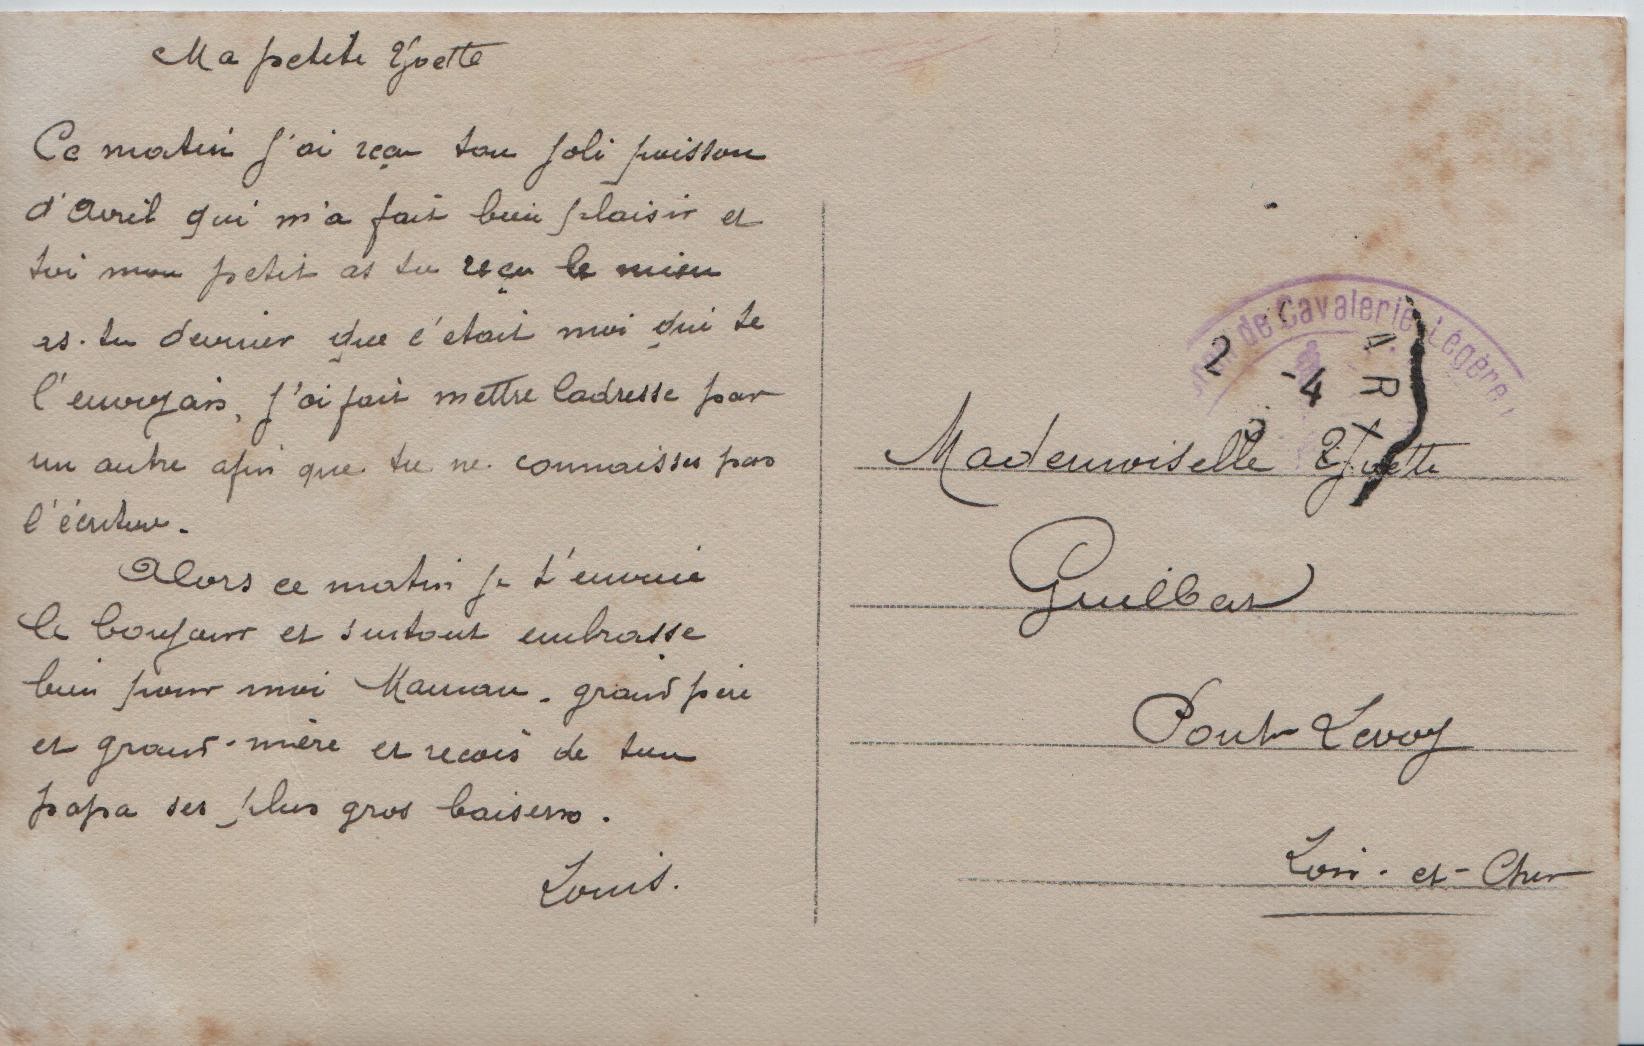 Ma petite Yvette
Ce matin j'ai reçu ton joli poisson
d'Avril qui m'a fait bien plaisir et
toi mon petit as tu reçu le mien
as-tu deviner que c'était moi qui te
l'envoyais, j'ai fait mettre ladresse par
un autre afin que tu ne connaisses pas
l'écriture.
Alors ce matin je t'envoie
le bonjour et surtout embrasse
bien pour moi Maman, grand père
et grand-mère et recois de ton
papa ses plus gros baisers.
Louis.
de Cavalerie Légère
2 -4
Mademoiselle Yvette
Guilbert
Pont Levoy
Loir-et-Cher